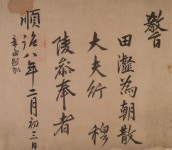 敎旨
田瀣為朝散
大夫行 穆
陵叅奉者
順治八年二月初三日